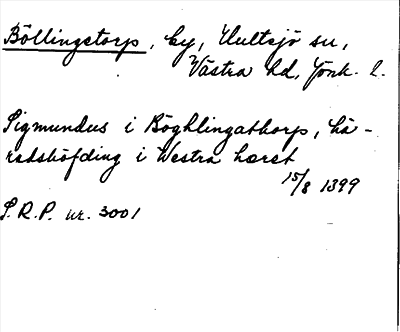 Böllingstorp, by, Hultsjö sn,
Västra hd, Jönk. l.
Sigmundus i Böghlingathorp, hä-
radshöfding i Westra hæret
15/8 1399
S.R.P. nr. 3001